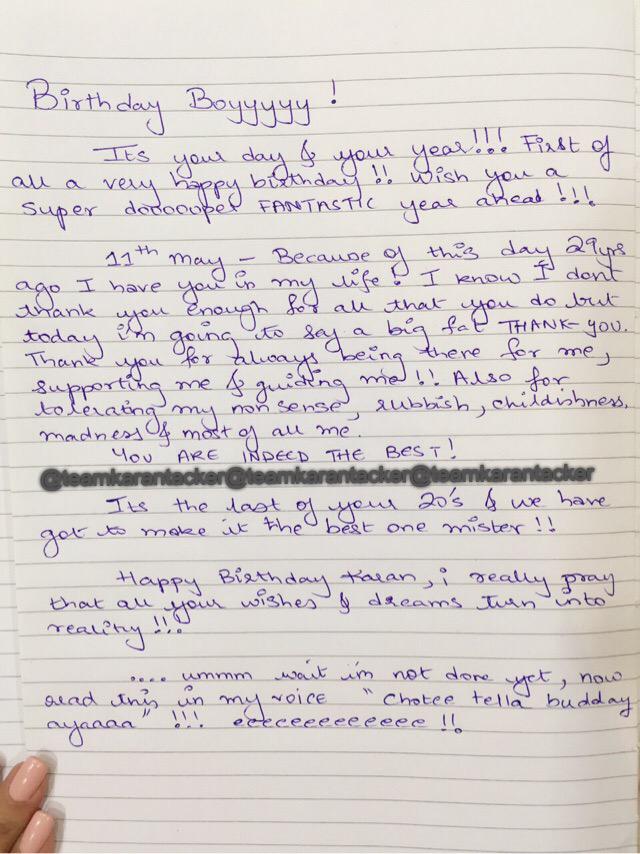 Birthday Boyyyyy !
Its your day & your year!!! First of
all a very happy birthday !! Wish you a
super dooooper FANTASTIC year ahead !!!
11th may - Because of this day 29yrs
ago I have you in my life! I know I dont
thank you enough for all that you do but
today i'm going to say a big fat THANK YOU.
Thank you for always being there for me,
supporting me & guiding me !! Also for
tolerating my non sense, rubbish, childishness,
madness & most of all me.
YOU ARE INDEED THE BEST!
@teamkarantacker@teamkarantacker@teamkarantacker
Its the last of your 20's & we have
got to make it the best one mister !!
Happy Birthday Karan, i really pray
that all your wishes & dreams turn into
reality !!!
.... ummm wait i'm not done yet, now
read this in my voice "Chotee tella budday
ayaaaa" !!! eeeeeeeeeeeee !!